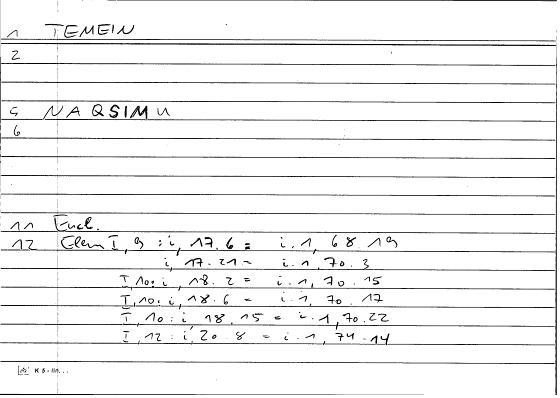 1 TEMEIN
2
5 NAQSIMU
6
11 Eucl.
12 Elem I, 9 : i, 17.6 = i.1, 68.19
i, 17.21 = i.1, 70.3
I, 10: i, 18.2 = i.1, 70.15
I, 10: i, 18.6 = i.1, 70.17
I, 10: i, 18.15 = i.1, 70.22
I, 12: i, 20.8 = i.1, 74.14